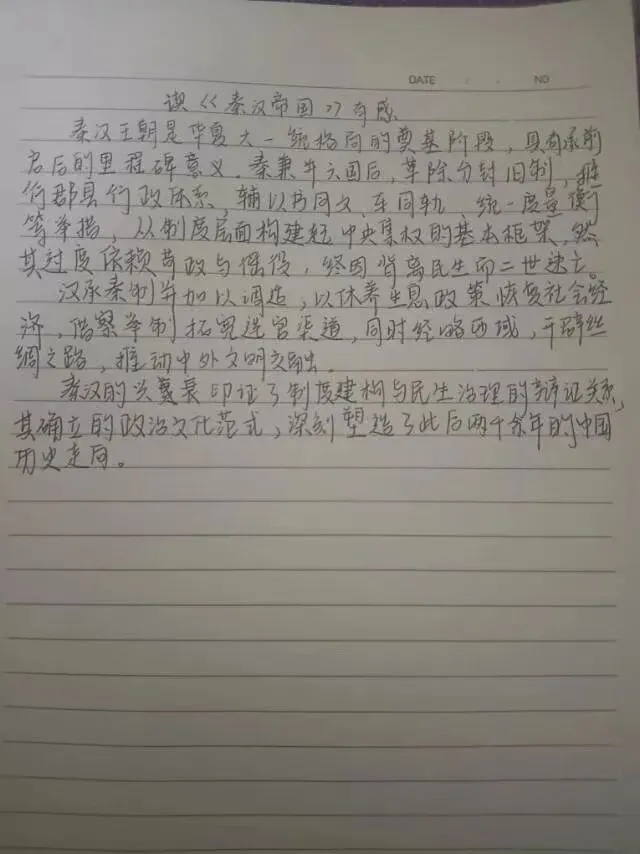 DATE . . NO
读《秦汉帝国》有感
秦汉王朝是华夏大一统格局的奠基阶段，具有承前
启后的里程碑意义。秦兼并六国后，革除分封旧制，推
行郡县行政体系，辅以书同文、车同轨、统一度量衡
等举措，从制度层面构建起中央集权的基本框架，然
其过度依赖苛政与徭役，终因背离民生而二世速亡。
汉承秦制并加以调造，以休养生息政策恢复社会经
济，借察举制拓宽选官渠道，同时经略西域，开辟丝
绸之路，推动中外文明交融。
秦汉的兴衰印证了制度建构与民生治理的辩证关系，
其确立的政治文化范式，深刻塑造了此后两千余年的中国
历史走向。